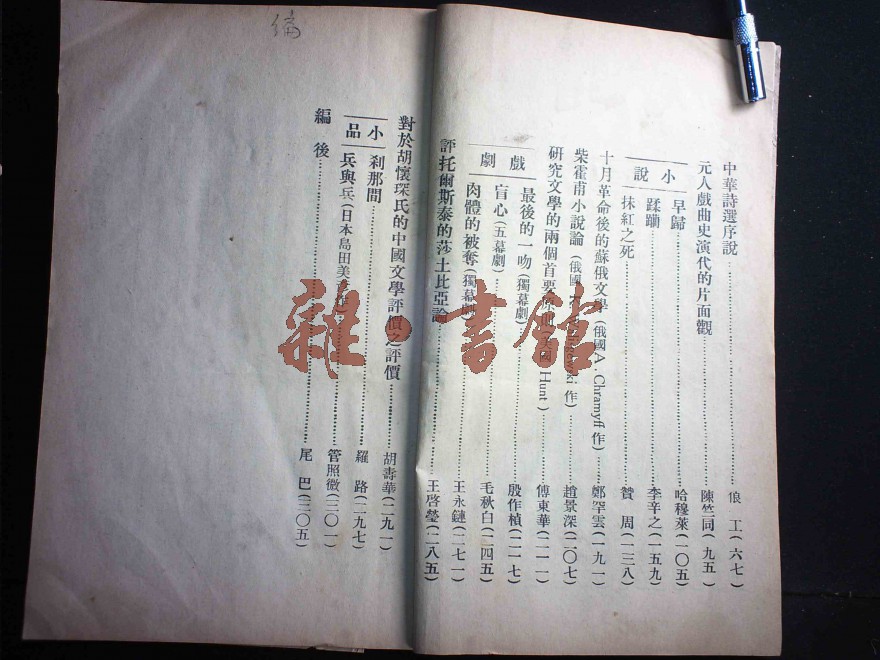 中華詩選序說……俍工(六七)
元人戲曲史演代的片面觀……陳竺同(九五)
小說
早歸……哈穆萊(一〇五)
蹂躪……李辛之(一五九)
抹紅之死……贊周(一三八)
十月革命後的蘇俄文學(俄國A. Chramyff作)……鄭罕雲(一九一)
柴霍甫小說論(俄國 作)……趙景深(二〇七)
研究文學的兩個首要 Hunt)……傅東華(二一一)
戲劇
最後的一吻(獨幕劇)……殷作楨(二一七)
盲心(五幕劇)……毛秋白(二四五)
肉體的被奪(獨幕劇)……王永鏈(二七一)
評托爾斯泰的莎士比亞論……王啓瑩(二八五)
對於胡懷琛氏的中國文學評價之評價……胡壽華(二九一)
小品
刹那間……羅路(二九七)
兵與兵(日本島田美 作)……管照微(三〇一)
編後……尾巴(三〇五)
編
雜·書館